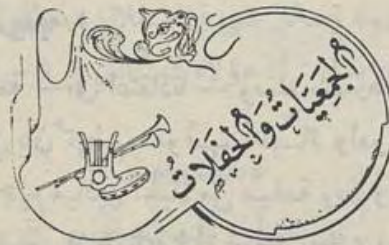 الجَمعيَّات وَالحَفَلاتُ